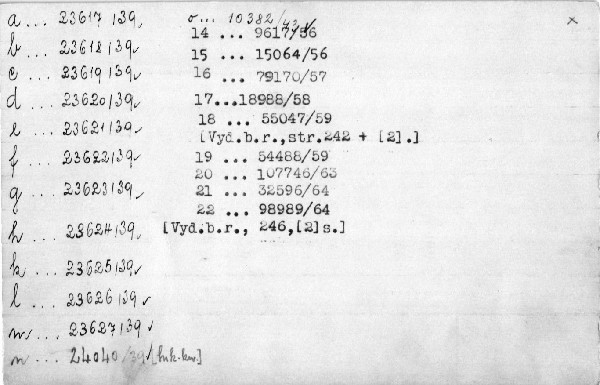 a ... 23617/39
b ... 23618/39
c ... 23619/39
d ... 23620/39
e ... 23621/39
f ... 23622/39
g ... 23623/39
h ... 23624/39
k ... 23625/39
l ... 23626/39
m ... 23627/39
n ... 24040/39
o... 10382/
14 ... 9617/56
15 ... 15064/56
16 ... 79170/57
17...18988/58
18 ... 55047/59
[Vyd.b.r.,str.242 + [2].]
19 ... 54488/59
20 ... 107746/63
21 ... 32596/64
22 ... 98989/64
[Vyd.b.r., 246,[2]s.]
x